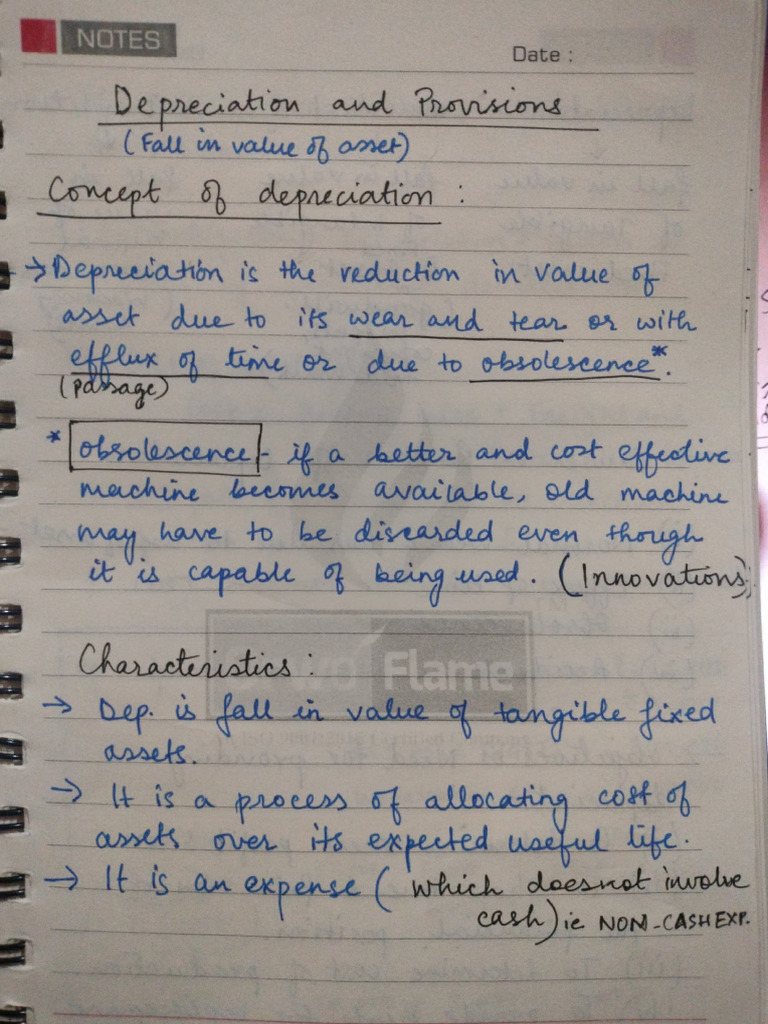 NOTES
Date :
Depreciation and Provisions
(Fall in value of asset)
Concept of depreciation :
→ Depreciation is the reduction in value of
asset due to its wear and tear or with
efflux of time or due to obsolescence*.
(passage)
* obsolescence - if a better and cost effective
machine becomes available, old machine
may have to be discarded even though
it is capable of being used. (Innovations)
Characteristics :
Flame
→ Dep. is fall in value of tangible fixed
assets.
→ It is a process of allocating cost of
assets over its expected useful life.
→ It is an expense ( which doesnot involve
cash) ie NON-CASH EXP.